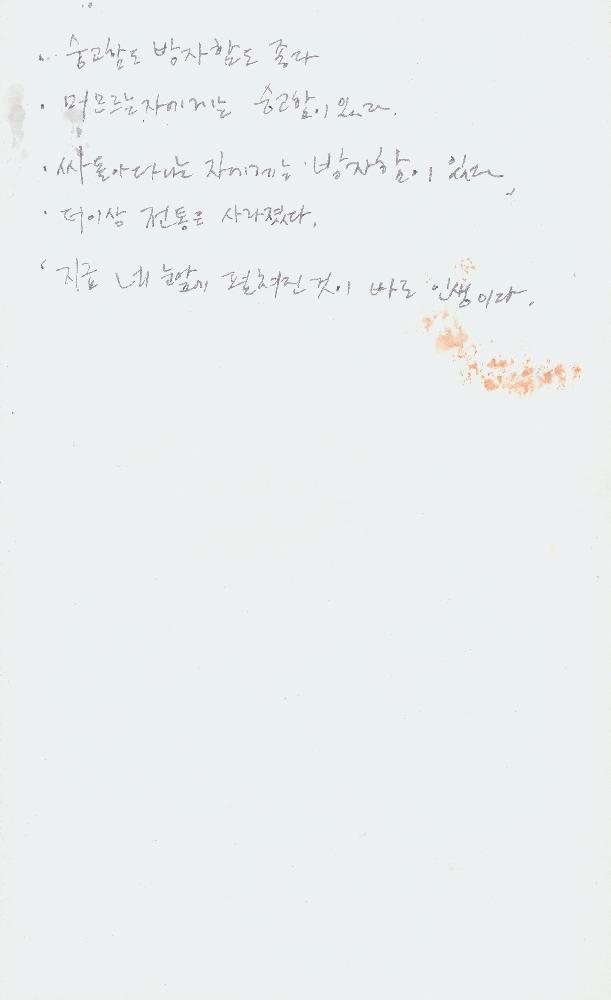 · 숭고함도 방자함도 좋다
· 머무르는 자에게는 숭고함이 있다.
· 싸돌아다니는 자에게는 방자함이 있다.
· 더이상 전통은 사라졌다.
· 지금 네 눈앞에 펼쳐진 것이 바로 인생이다.